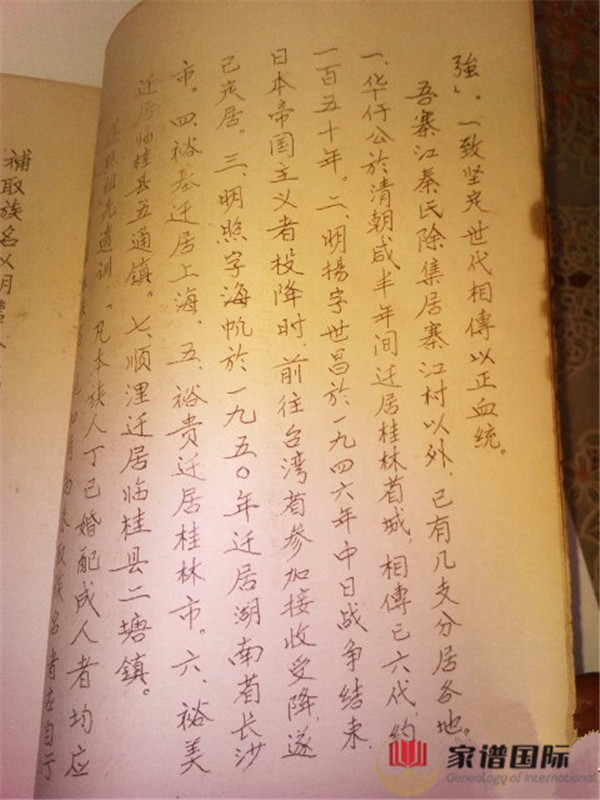 強」。一致坚定世代相傳以正血统。
吾寨江秦氏除集居寨江村以外，已有几支分居各地。
一、华仔公於清朝咸半年间迁居桂林省城，相傳已六代，约
一百五十年。二、明揚字世昌於一九四六年中日战争结束，
日本帝国主义者投降时，前往台湾省参加接收受降，遂
己定居。三、明照字海帆於一九五〇年迁居湖南省长沙
市。四、裕基迁居上海。五、裕贵迁居桂林市。六、裕美
迁居临桂县五通镇。七、顺浬迁居临桂县二塘鎮。
祖先遗训，“凡本族人丁已婚配成人者均应
取族名者在自行
補取族名以明
家谱国际
Genealogy of International